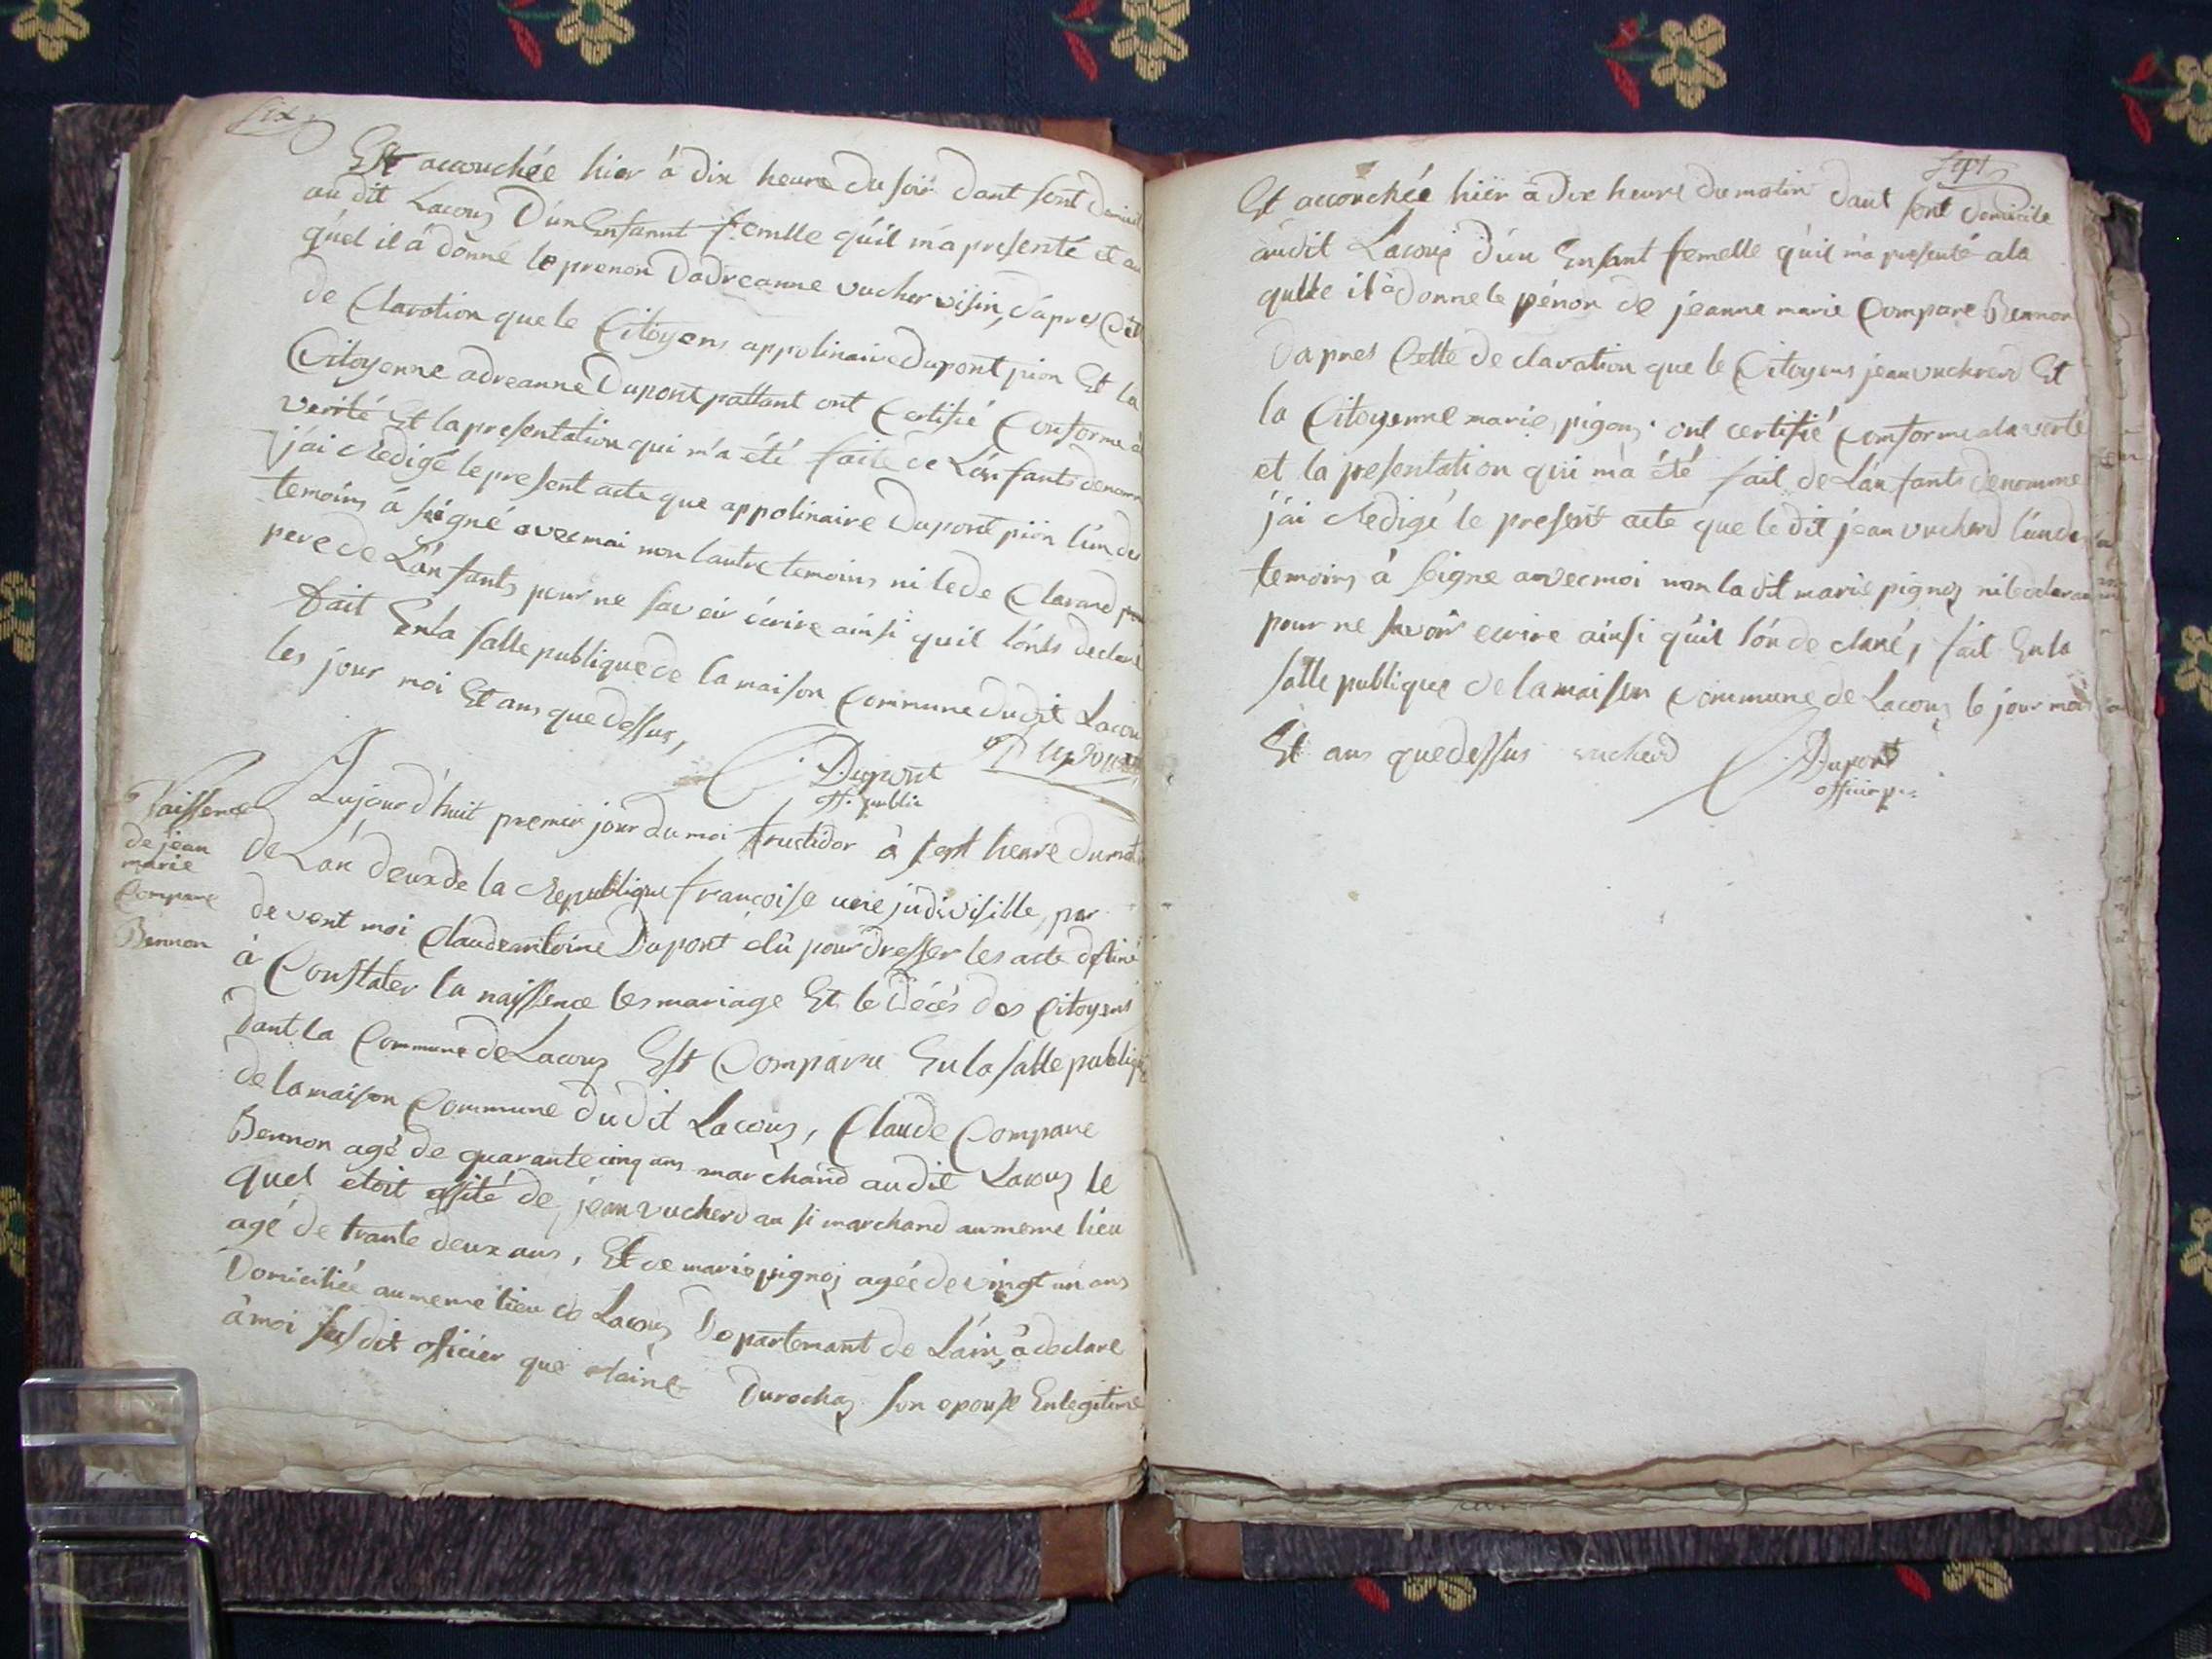 six
Est accouchée hier à dix heure du soir dant sont domicil
au dit Lacoux D'un Enfannt femlle qu'il m'a presenté et au
quel il à donné le prenon Dadreanne vucher visin, d'apres Cet
de Claration que le Citoyens appolinaire Dupont pion Et la
Citoyenne adreanne Dupont pattant ont Certifié Conforme a
verité Et la presentation qui m'a été faite de L'an fants denom
j'ai Redigé le present acte que appolinaire Dupont pion l'un des
temoins á signé avec moi non lautre temoins ni le de Clarand
pere de L'an fants pour ne savoir écrire ainsi quil l'onts declaré
fait Enla salle publique de la maison Commune du dit Lacou
les jour moi Et ans que dessus,
Dupont
off. public
Naissence
de jean
marie
Compane
Bennon
Aujourd'huit premier jour du moi fructidor à sept heure du mat
de L'an deux de la Republique françoise une judivisible, par
devent moi Claude antoine Dupont elû pour dresser les acte destiné
à Constater la naissence les mariage Et le décés des Citoyens
dant la Commune de Lacoux Est Comparu En la salle publique
de la maison Commune du dit Lacoux, Claude Compane
Bennon agé de quarante cinq ans marchand au dit Lacoux le
quel etoit assité de jean vucherd au si marchand au meme lieu
agé de trante deux ans, Et de marie pignoz agée de vingt un ans
Domiciliée au meme lieu de Lacoux Departemant de L'ain, à declaré
à moi susdit officier que etaine Durochaz son epouse En legitime
sept
Et accouchée hiër à dix heure du matin dant sont domicile
au dit Lacoux d'un Enfant femelle qu'il m'a presenté a la
qulle il à donne le pénon de jeanne marie Compane Bennon
dapres Cette de claration que le Citoyens jean vucherd Et
la Citoyenne marie pignoz ont certifié Comforme a la verté
et la presentation qui m'a été fait de L'an fants denomme
j'ai Redigé le present acte que le dit jean vucherd l'un de
temoins à seigne avec moi non la dit marie pignoz ni le de claran
pour ne savoir ecrire ainsi qu'il l'on de claré, fait En la
salle publique de la maison Commune de Lacoux le jour mois
Et ans que dessus vucherd Dupont
officier p.